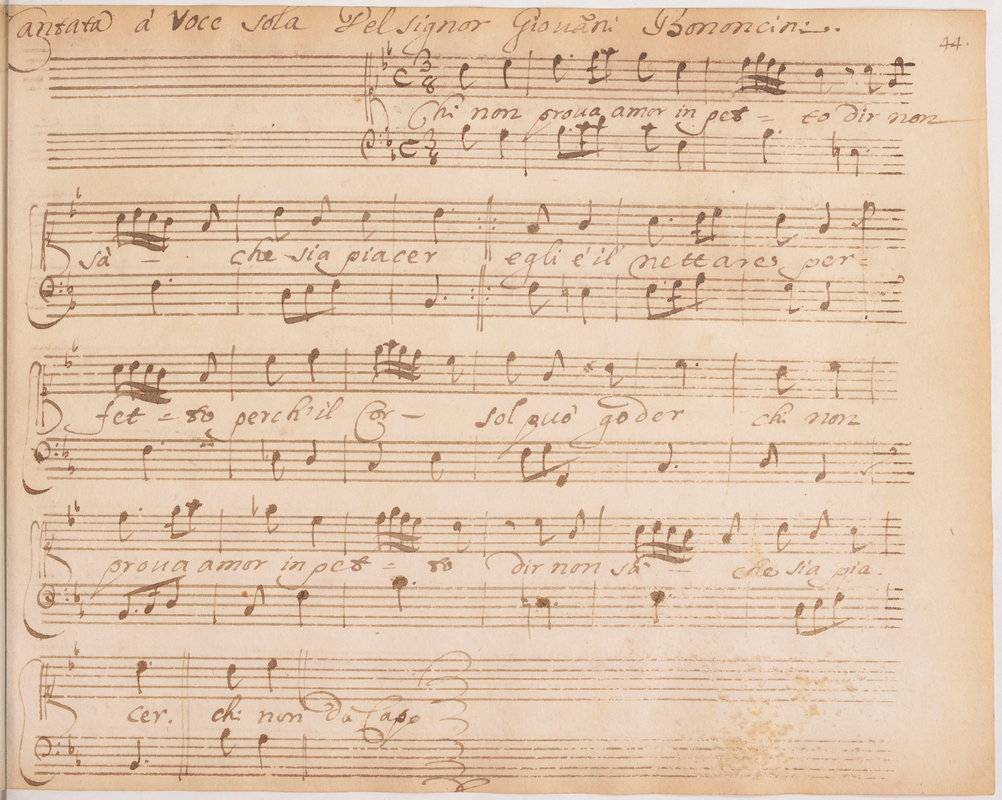 Cantata à Voce sola Del signor Giovãni Bononcini.
44.
Chi non proua amor in pet = to dir non
sà che sia piacer egli é il nettare per=
fet = to perch'il Cor - sol può goder chi non
proua amor in pet = to dir non sà che sia pia:
cer. chi non da Capo